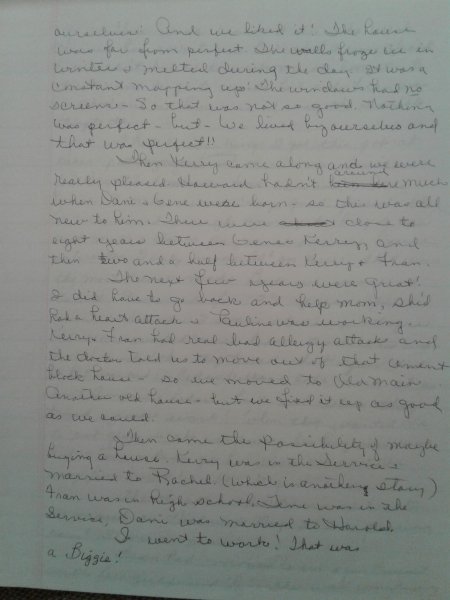 ourselves! And we liked it! The house
was far from perfect. The walls froze ice in
winter & melted during the day. It was a
constant mopping up. The windows had no
screens - So that was not so good. Nothing
was perfect - but - we lived by ourselves and
that was perfect!!
Then Kerry came along and we were
really pleased. Howard hadn't been around much
when Dani & Gene were born - so this was all
new to him. There were close to
eight years between Gene & Kerry, and
then two and a half between Kerry & Fran.
The next few years were great!
I did have to go back and help mom, she'd
had a heart attack & Pauline was working
Kerry & Fran had real bad allergy attacks and
the doctor told us to move out of that cement
block house - so we moved to Main.
Another old house - but we fixed it up as good
as we could.
Then came the possibility of maybe
buying a house. Kerry was in the Service &
married to Rachel (which is another story)
Fran was in high school. Gene was in the
Service, Dani was married to Harold.
I went to work! That was
a Biggie!